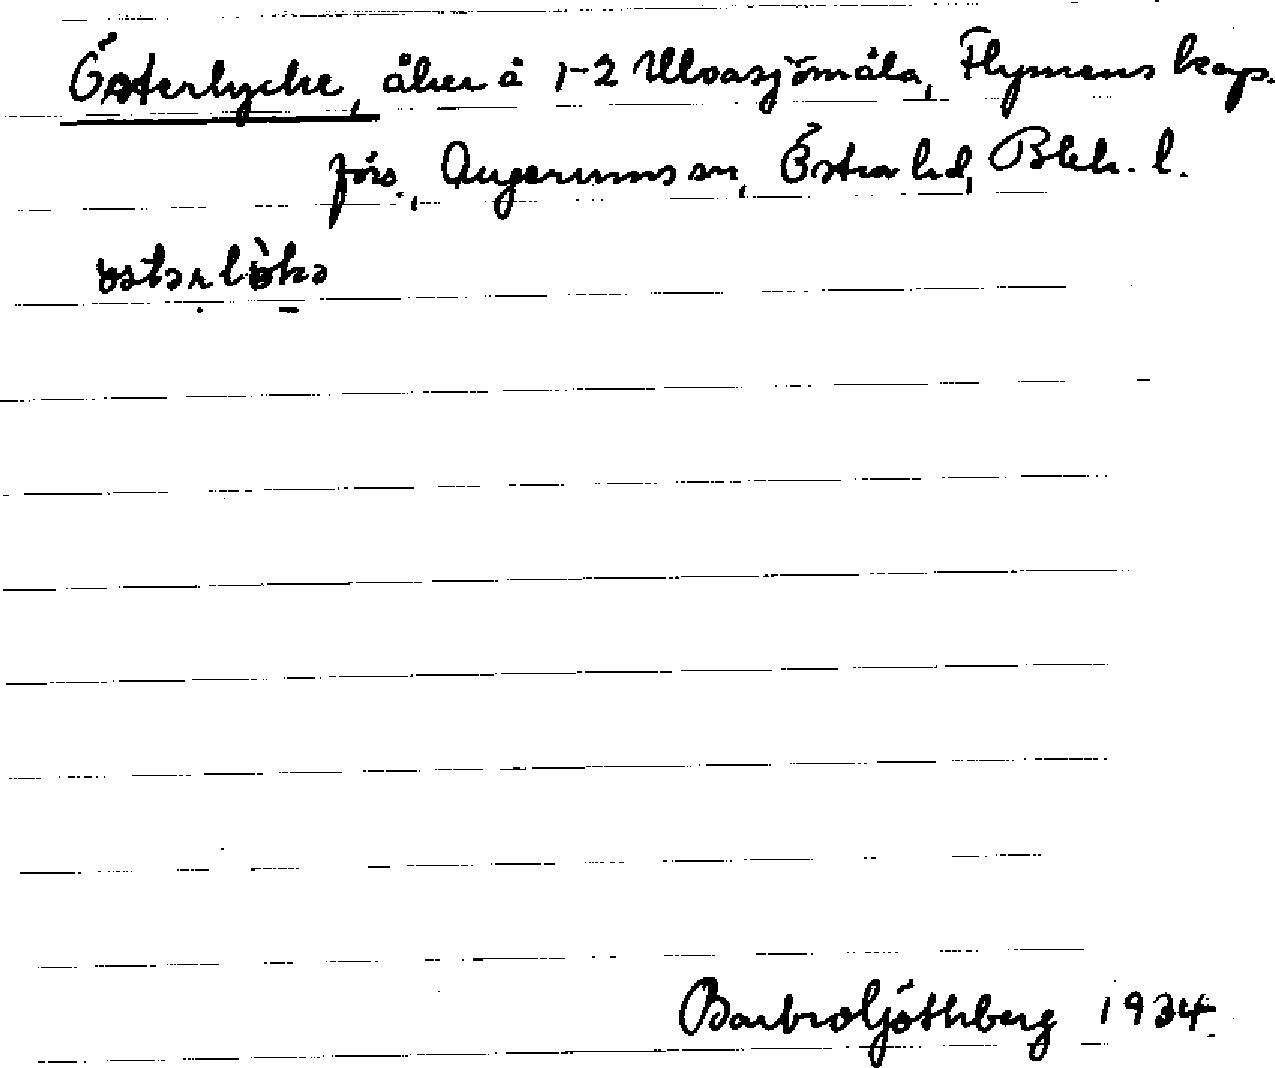 Österlycke, åker å 1-2 Ulvasjömåla, Flymens kap.
förs., Augerums sn, Östra hd, Blek. l.
Barbro Göthberg 1934